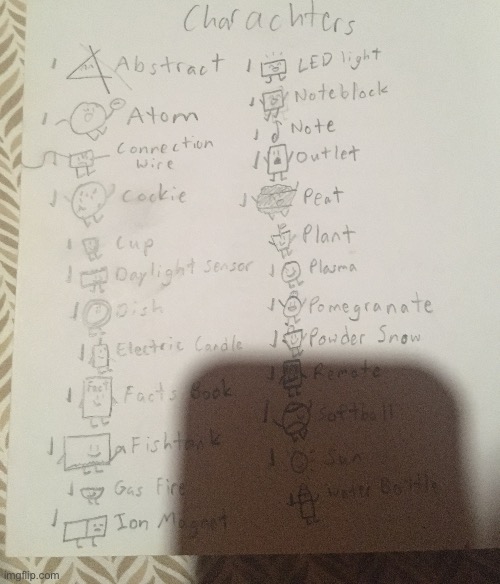 Charachters
1 Abstract
1 Atom
Connection
Wire
1 Cookie
1 Cup
1 Daylight Sensor
1 Dish
1 Electric Candle
1 Fact
Facts Book
1 Fishtank
1 Gas Fire
1 Ion Magnet
1 LED light
1 Noteblock
1 Note
1 Outlet
1 Peat
Plant
1 Plasma
1 Pomegranate
1 Powder Snow
1 Remote
1 Softball
1 Sun
1 Water Bottle
imgflip.com